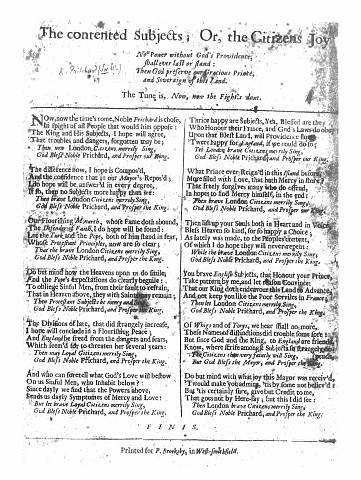 The contented Subjects; Or, the Citizens Joy
No Power without God's Providence,
shall ever last or stand:
Then God preserve our Gracious Prince,
and Sovereign of this Land.
The Tune is, Now, now the Fight's done.
NOw, now the time's come, Noble Prichard is chose,
In spight of all People that would him oppose:
The King and His Subjects, I hope will agree,
That troubles and dangers, forgotten may be;
Then now London Citizens merrily Sing,
God Bless Noble Prichard, and Prosper our King.
The difference now, I hope is Compos'd,
And the confidence that in our Mayor's Repos'd
I do hope will be answer'd in every degree,
If so, then no Subjects more happy than we:
Then brave London Citizens merrily Sing,
God Bless Noble Prichard, and Prosper our King.
Our Flourishing Monarch, whose Fame doth abound,
The Defender of Faith, I do hope will be found:
Let the Turk and the Pope, both of them stand in fear,
Whose Protestant Principles, now are so clear;
That the brave London Citizens merrily Sing,
God Bless Noble Prichard, and Prosper the King.
Do but mind how the Heavens upon us do smile,
And the Pope's expectations do clearly beguile:
To oblige Sinful Men, from their fault to refrain,
That in Heaven above, they with Saints may remain;
Then Protestant Subjects be merry and Sing,
God Bless Noble Prichard, and Prosper the King.
The Divisions of late, this did strangely increase,
I hope will conclude in a Flourishing Peace;
And England be freed from the dangers and fears,
Which seem'd to threaten her several years:
Then may Loyal Citizens merrily Sing,
God Bless Noble Prichard, and Prosper the King.
And who can foretell what God's Love will bestow
On us Sinful Men, who Inhabit below?
Since dayly we find that the Powers above,
Sends us dayly Symptomes of Mercy and Love:
But let brave Loyal Citizens merrily Sing,
God Bless Noble Prichard, and Prosper the King.
Thrice happy are Subjects, Yea, Blessed are they
Who Honour their Prince, and God's Laws do obey
Upon that Blest Land, will Providence
'Twere happy for England, if we could do so;
Yet London brave Citizens merrily Sing,
God Bless Noble Prichard, and Prosper our King.
What Prince ever Reign'd in this Land before,
More fill'd with Love, that hath Mercy in store
That freely forgives many who do offend,
In hopes to find Mercy himself, in the end:
Then brave London Citizens merrily Sing,
God Bless Noble Prichard, and Prosper our King.
Then lift up your Souls both in Heart and in Voice
Bless Heaven so kind, for so happy a Choice
As lately was made, to the People's content,
Of which I do hope they will never repent:
While the brave London Citizens merrily Sing,
God Bless Noble Prichard, and Prosper the King.
You brave English Subjects, that Honour your Prince,
Take pattern by me, and let reason Convince
That our King doth endeavour this Land to Advance,
And not keep you like the Poor Serviles in France;
Then let London Citizens merrily Sing,
God Bless Noble Prichard, and Prosper the King.
Of Whigs and of Torys, we hear shall no more,
These Names of distinctions did trouble some sore;
But since God and the King, to England are friends,
Know, where strife amongst Subjects is
The Citizens then very fairly will Sing,
But God Bless the Mayor, and Prosper the King.
Do but mind with what joy this Mayor was receiv'd,
'T would make you admiring, 'tis by some not believ'd:
But 'tis certainly sure, give but Credit to me,
That goes not by Here-say, but this I did see:
Then London brave Citizens merrily Sing,
God Bless Noble Prichard, and Prosper the King.
FINIS.
Printed for P. Brooksby, in West-smithfield.